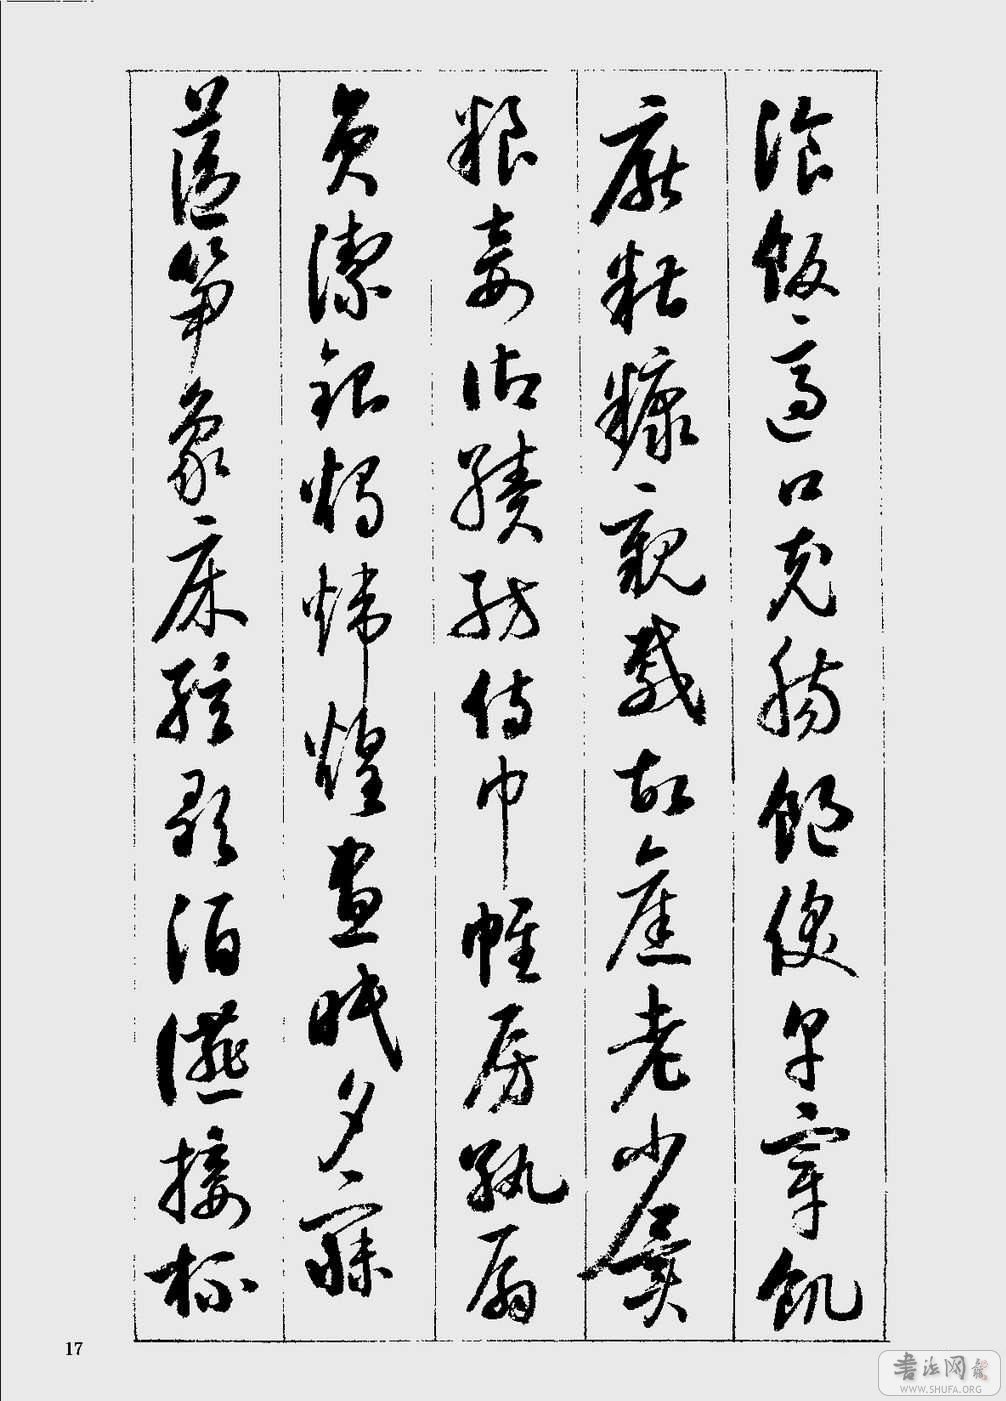 湌飯適口充腸飽飫亨宰飢
厭糟糠親戚故舊老少異
糧妾御績紡侍巾帷房紈扇
員潔銀燭煒煌晝眠夕寐
藍笋象床絃歌酒讌接杯
17
書法网
WWW.SHUFA.ORG